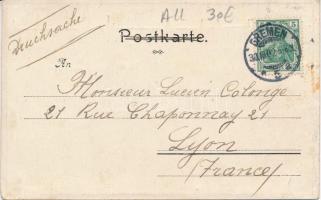 All 30€
Drucksache
Postkarte.
An
BREMEN
5
Monsieur Lucien Colonge
21 Rue Chaponnay 21
Lyon
(France)